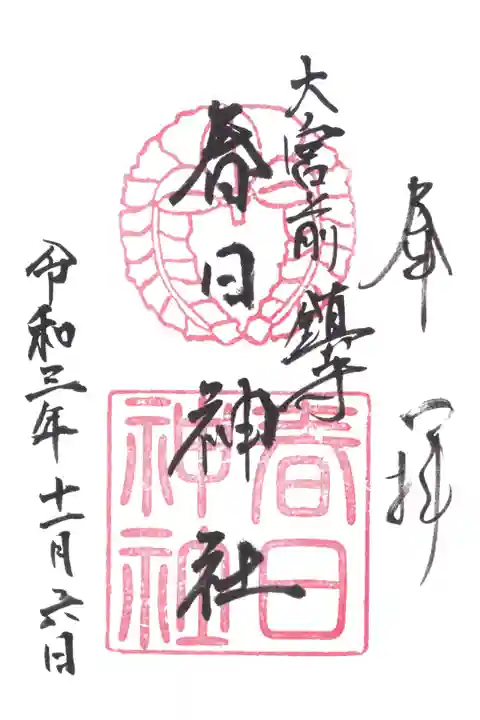 奉拝
大宮前鎮守
春日神社
春日神社
令和三年十一月六日